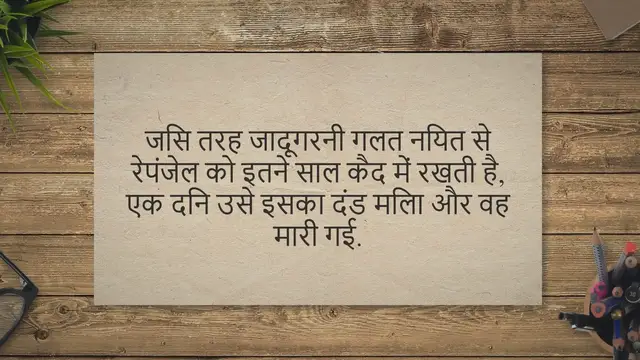 जसि तरह जादूगरनी गलत नयित से
रेपंजेल को इतने साल कैद में रखती है,
एक दनि उसे इसका दंड मलिा और वह
मारी गई.